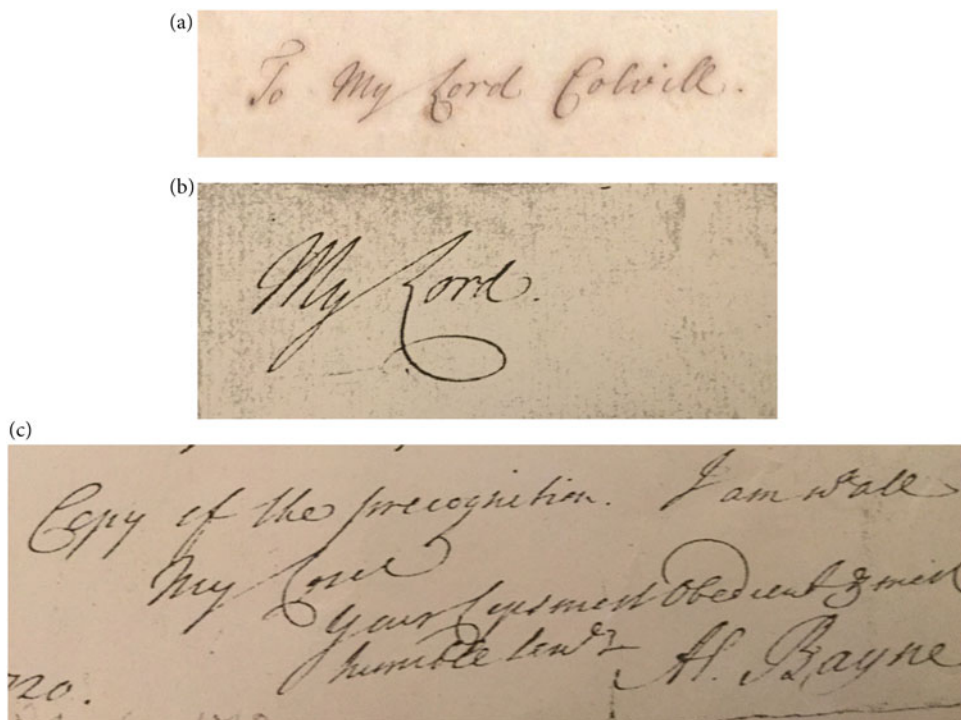 (a)
To My Lord Colvill.
(b)
My Lord.
(c)
Copy of the precognition. I am wt all
My Lord
your Lops most Obedient & most
humble servt
Al. Bayne
720.